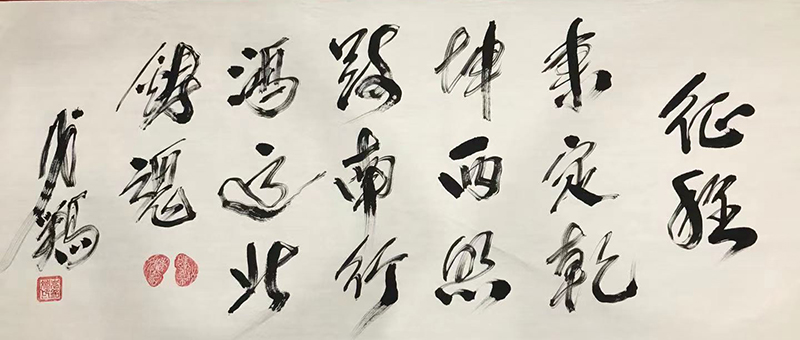 征程
東定乾
坤西照
路南行
鸿运北
铸魂